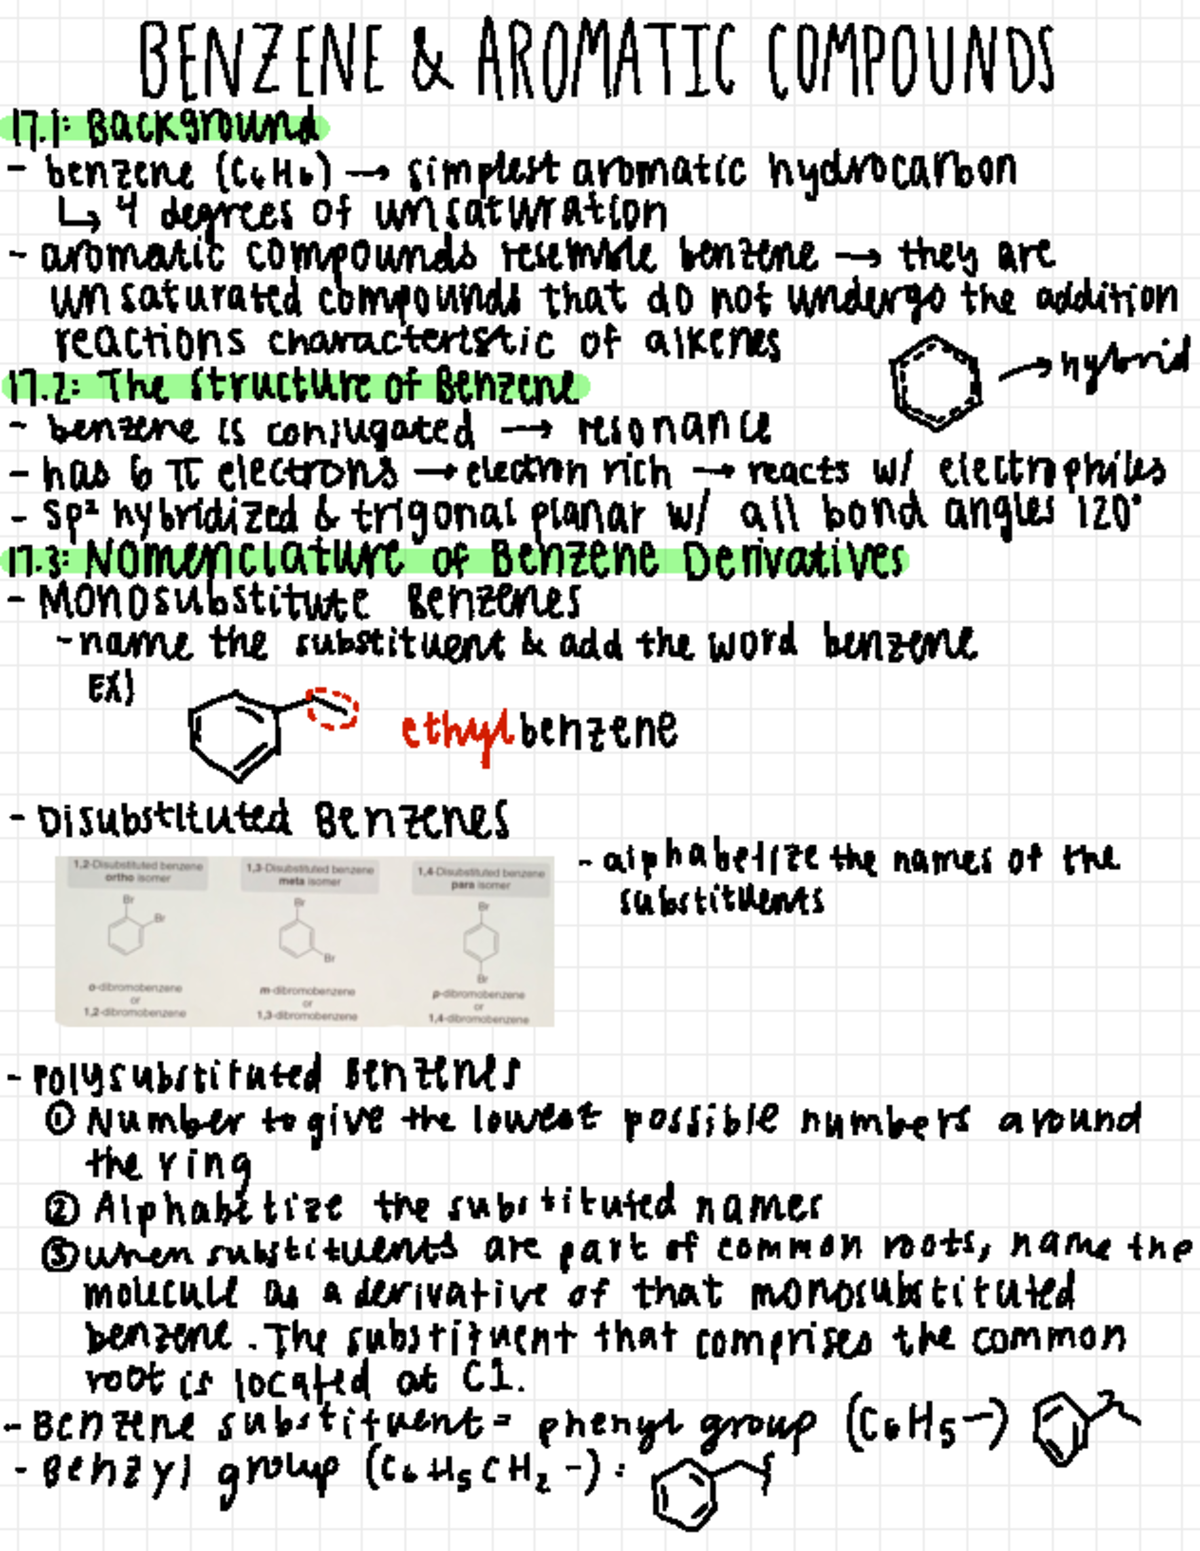 BENZENE & AROMATIC COMPOUNDS
17.1: Background
- benzene (C6H6) → simplest aromatic hydrocarbon
↳ 4 degrees of unsaturation
- aromatic compounds resemble benzene → they are
unsaturated compounds that do not undergo the addition
reactions characteristic of alkenes
→ hybrid
17.2: The Structure of Benzene
- benzene is conjugated → resonance
- has 6 π electrons → electron rich → reacts w/ electrophiles
- sp² hybridized & trigonal planar w/ all bond angles 120°
17.3: Nomenclature of Benzene Derivatives
- Monosubstitute Benzenes
- name the substituent & add the word benzene
EX)
ethylbenzene
- Disubstituted Benzenes
1,2-Disubstituted benzene
ortho isomer
1,3-Disubstituted benzene
meta isomer
1,4-Disubstituted benzene
para isomer
Br
Br
Br
Br
Br
Br
o-dibromobenzene
or
1,2-dibromobenzene
m-dibromobenzene
or
1,3-dibromobenzene
p-dibromobenzene
or
1,4-dibromobenzene
- alphabetize the names of the
substituents
- Polysubstituted Benzenes
① Number to give the lowest possible numbers around
the ring
② Alphabetize the substituted names
③ when substituents are part of common roots, name the
molecule as a derivative of that monosubstituted
benzene. The substituent that comprises the common
root is located at C1.
- Benzene substituent = phenyl group (C6H5-)
- Benzyl group (C6H5CH2-):